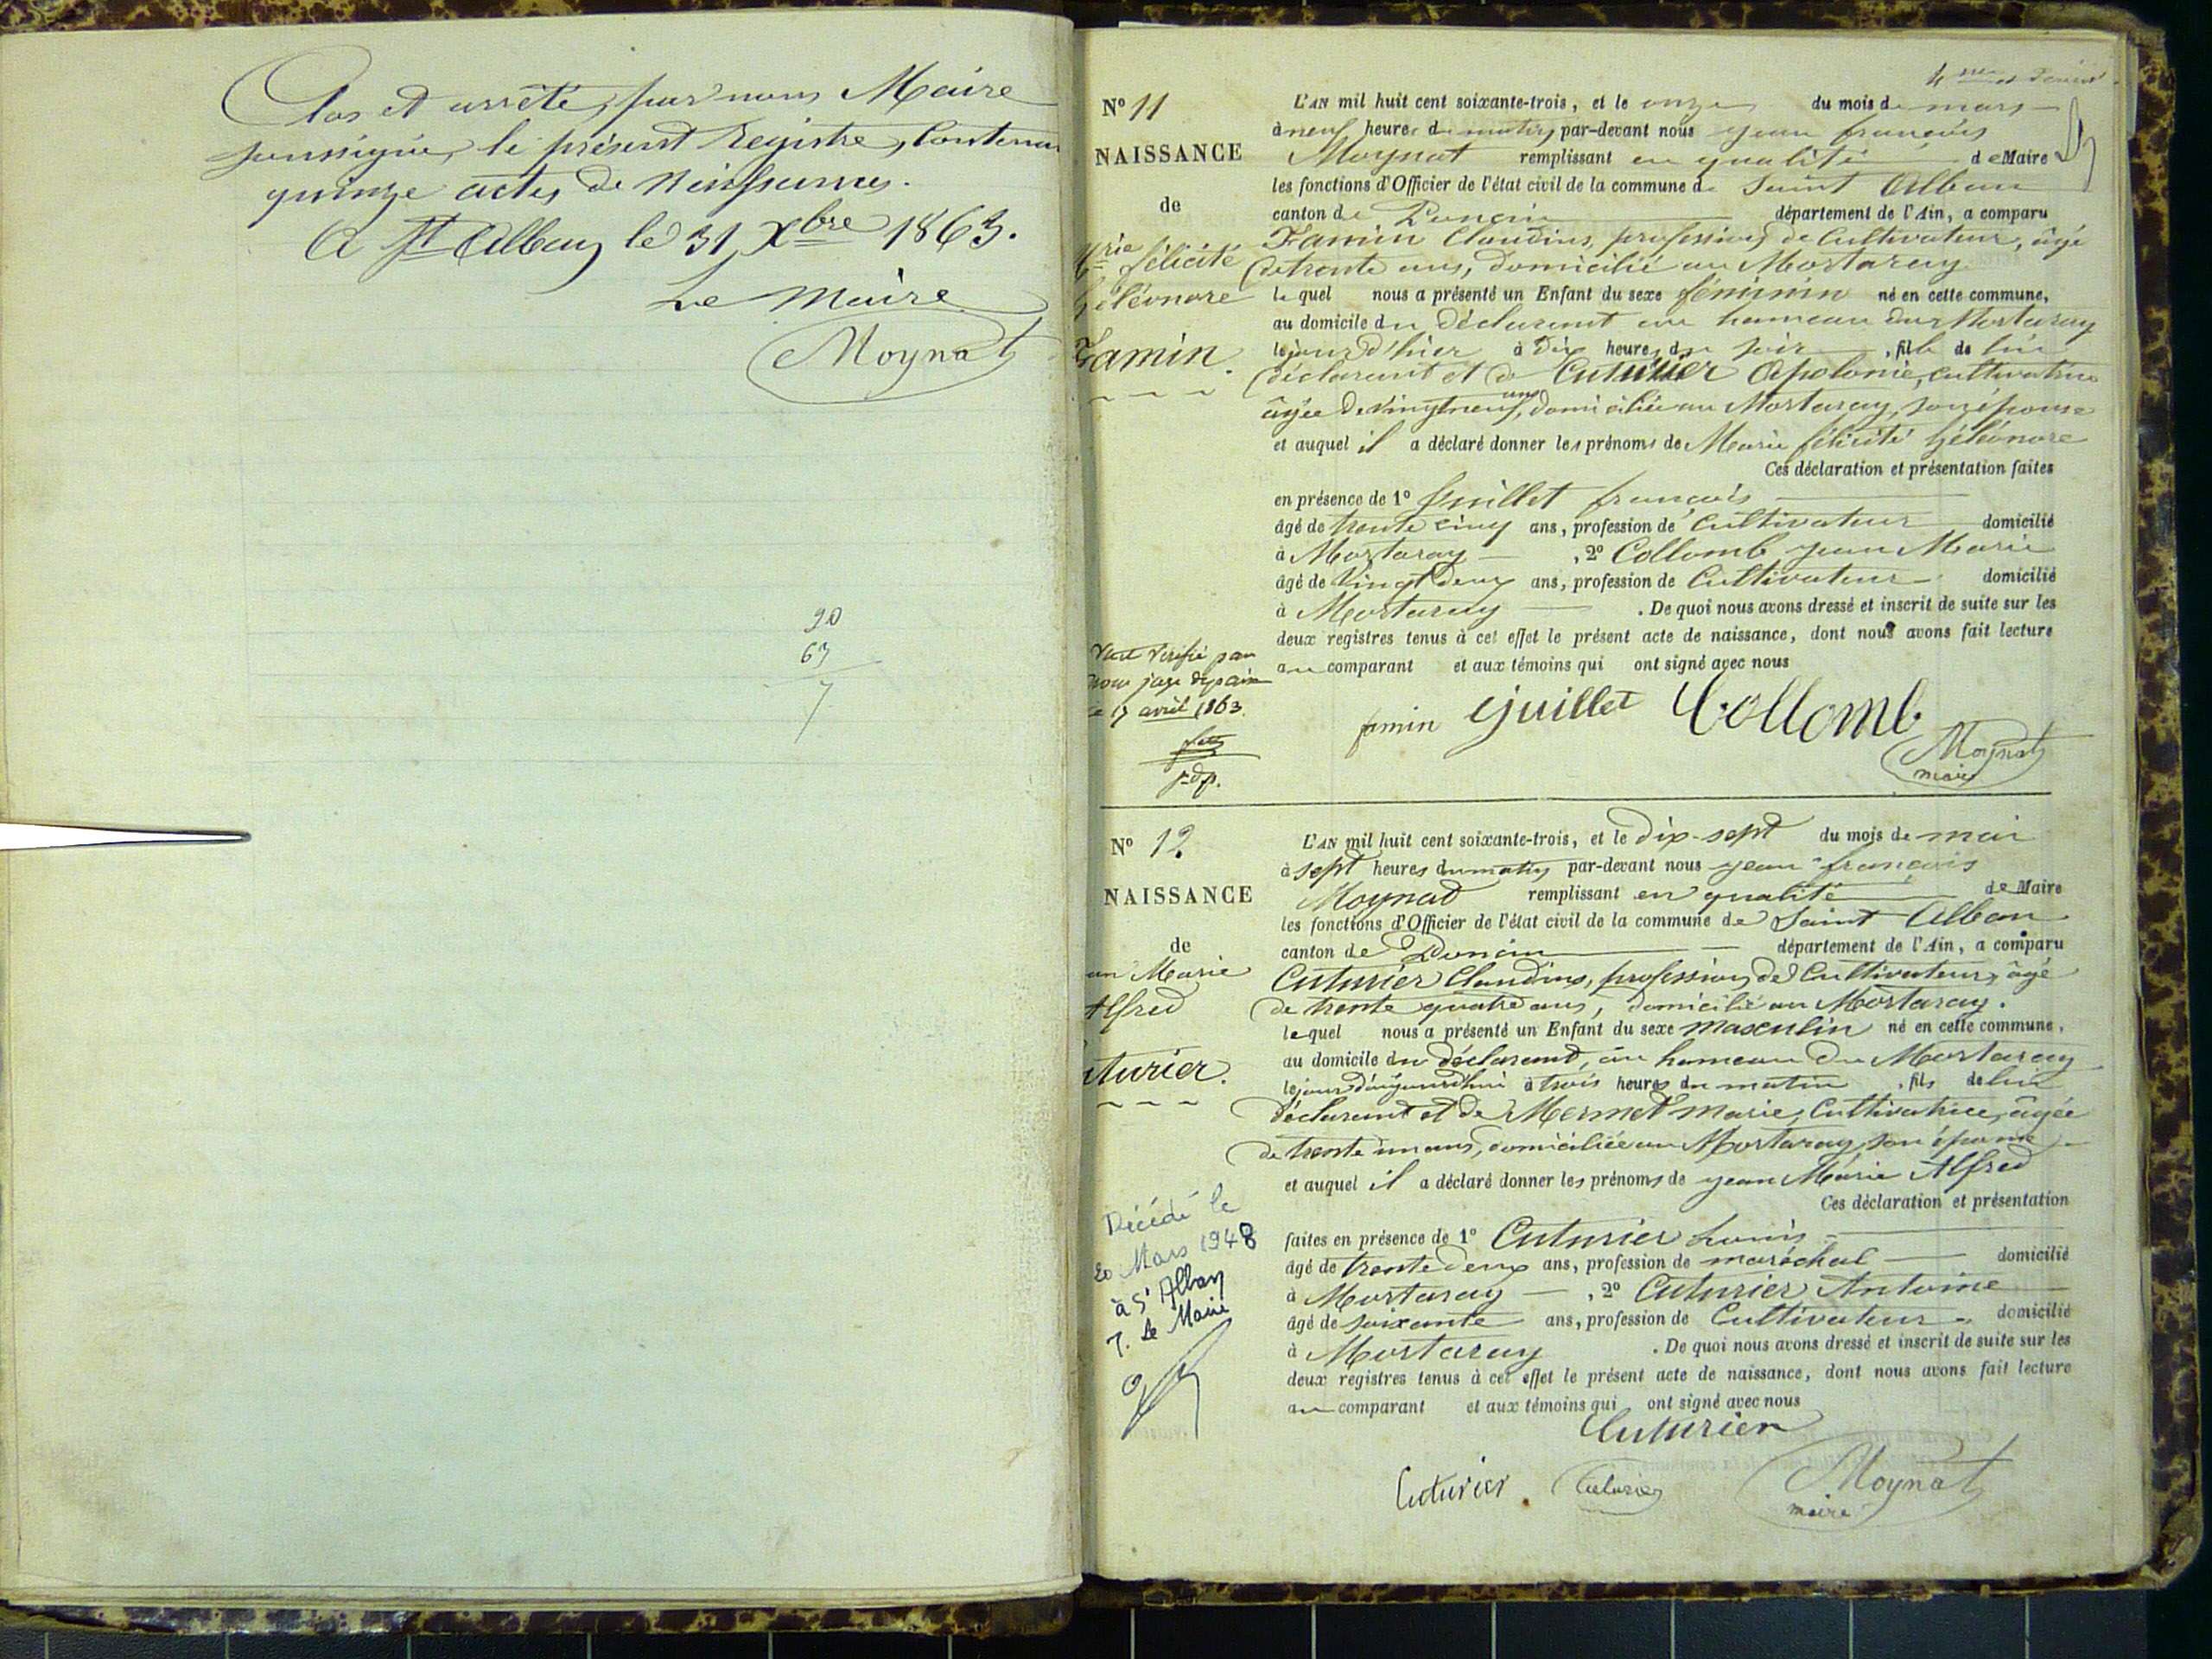 Clos et arrêté, par nous Maire
soussigné, le présent Registre, Contenan
quinze actes de Naissances.
A St Alban le 31 Xbre 1863.
Le Maire
Moynat
90
63
7
No 11
NAISSANCE
de
Mrie félicité
héléonore
Famin.
Vu et Vérifié par
nous juge de paix
le 17 avril 1863.
j. d. p.
L'AN mil huit cent soixante-trois, et le onze du mois de mars
à neuf heures du matin par-devant nous jean françois
Moynat remplissant en qualité de Maire
les fonctions d'Officier de l'état civil de la commune de Saint Alban
canton de Poncin département de l'Ain, a comparu
Famin Claudius, profession de Cultivateur, âgé
de trente ans, domicilié au Mortaray
le quel nous a présenté un Enfant du sexe féminin né en cette commune,
au domicile du Déclarant au hameau du Mortaray
le jour d'hier à Dix heures du soir, fille de lui
déclarant et de Cuturier Apolonie, cultivatrice
âgée de vingt neuf ans, domiciliée au Mortaray, son épouse
et auquel il a déclaré donner les prénoms de Marie félicité héléonore
Ces déclaration et présentation faites
en présence de 1o Guillet françois
âgé de trente cinq ans, profession de Cultivateur domicilié
à Mortaray, 2o Collomb jean Marie
âgé de Vingt deux ans, profession de Cultivateur domicilié
à Mortaray. De quoi nous avons dressé et inscrit de suite sur les
deux registres tenus à cet effet le présent acte de naissance, dont nous avons fait lecture
au comparant et aux témoins qui ont signé avec nous
famin Guillet Collomb
Moynat
maire
No 12
NAISSANCE
de
an Marie
Alfred
uturier.
Décédé le
20 Mars 1948
à St Alban
Le Maire
L'AN mil huit cent soixante-trois, et le dix-sept du mois de mai
à sept heures du matin par-devant nous jean françois
Moynat remplissant en qualité de Maire
les fonctions d'Officier de l'état civil de la commune de Saint Alban
canton de Poncin département de l'Ain, a comparu
Cuturier Claudius, profession de Cultivateur, âgé
de trente quatre ans, domicilié au Mortaray.
le quel nous a présenté un Enfant du sexe masculin né en cette commune,
au domicile du déclarant, au hameau du Mortaray
le jour d'aujourd'hui à trois heures du matin, fils de lui
déclarant et de Mermet marie, Cultivatrice, âgée
de trente un ans, domiciliée au Mortaray, son épouse
et auquel il a déclaré donner les prénoms de jean Marie Alfred
Ces déclaration et présentation
faites en présence de 1o Cuturier Louis
âgé de trente deux ans, profession de maréchal domicilié
à Mortaray, 2o Cuturier Antoine
âgé de soixante ans, profession de Cultivateur domicilié
à Mortaray. De quoi nous avons dressé et inscrit de suite sur les
deux registres tenus à cet effet le présent acte de naissance, dont nous avons fait lecture
au comparant et aux témoins qui ont signé avec nous
Cuturier
Cuturier Cuturier Moynat
maire